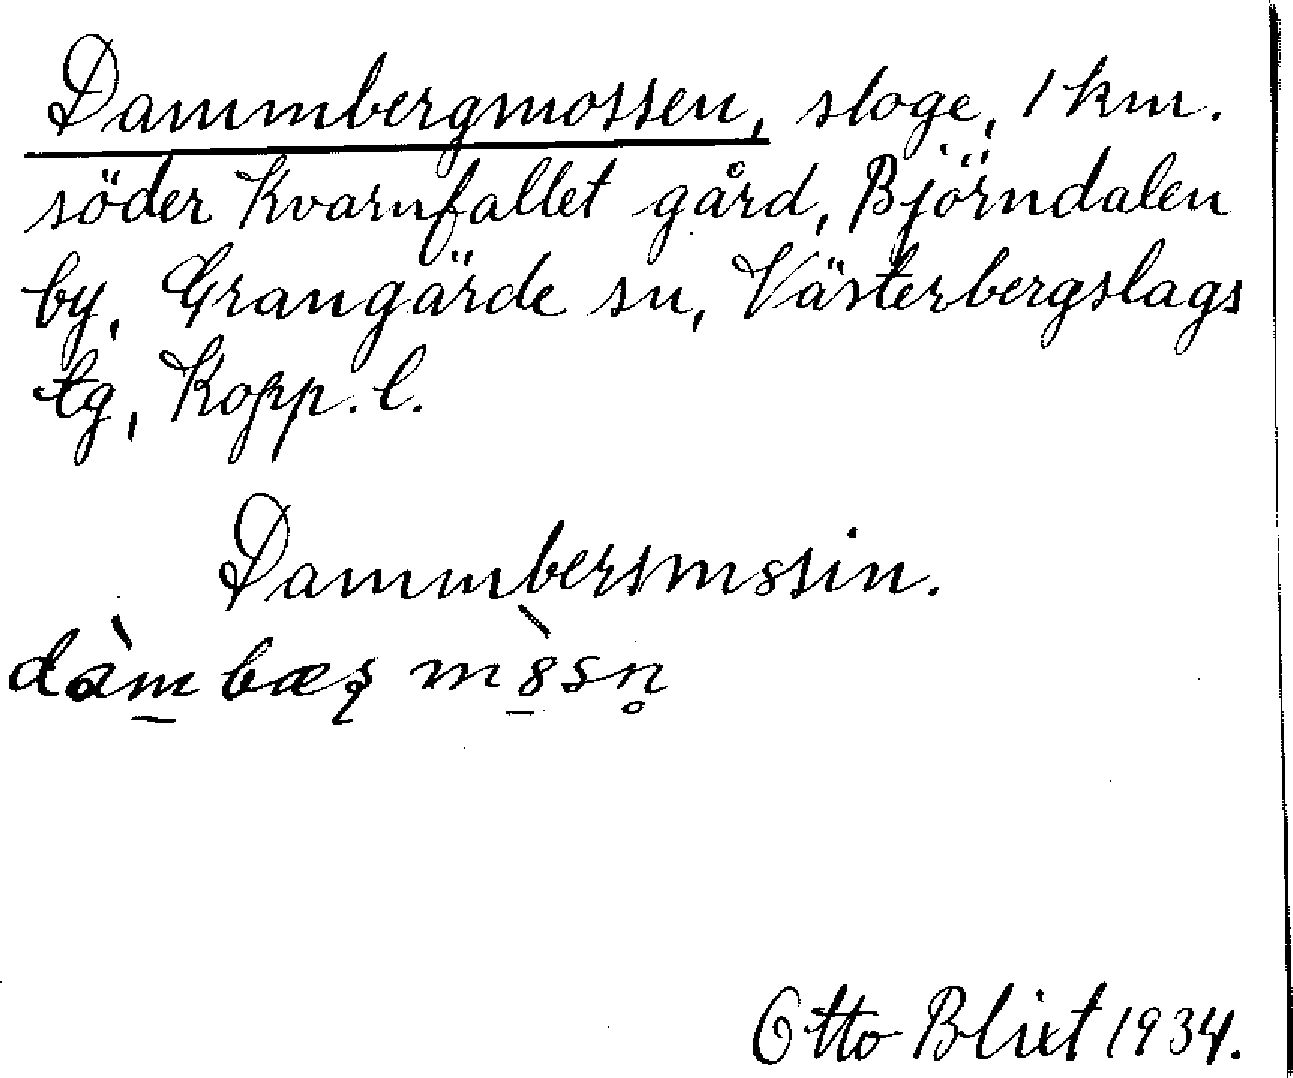 Dammbergmossen, sloge, 1 km.
söder Kvarnfallet gård, Björndalen
by, Grangärde sn, Västerbergslags
tg, Kopp. l.
Dammbersm8sin.
dàm̲bæʂ m8̲̀sn̥
Otto Blixt 1934.